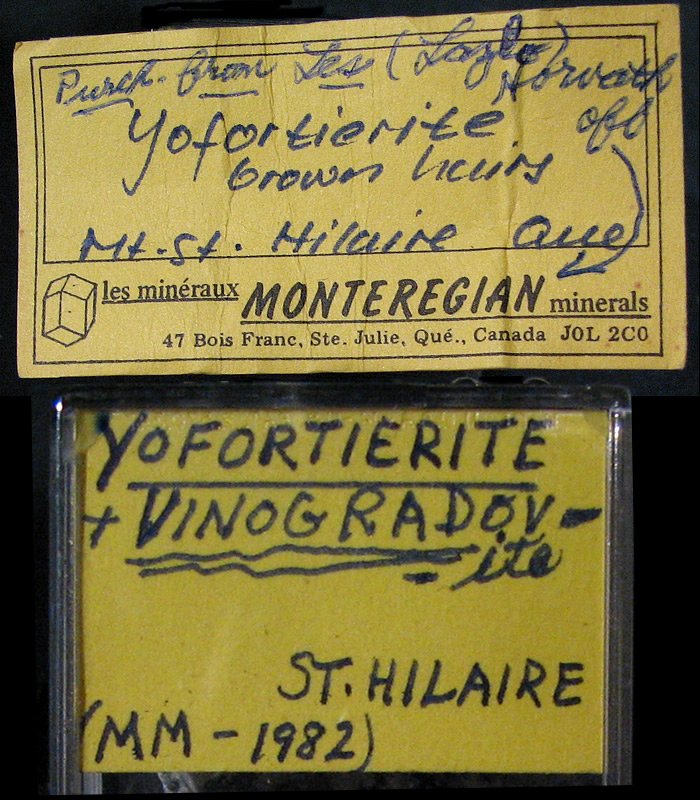 Purch. from Les (Lazlo) Horvath
Yofortierite off
brown hairs
Mt. St. Hilaire Que
les minéraux MONTEREGIAN minerals
47 Bois Franc, Ste. Julie, Qué., Canada J0L 2C0
YOFORTIERITE
+ VINOGRADOV-
-ite
ST. HILAIRE
(MM - 1982)